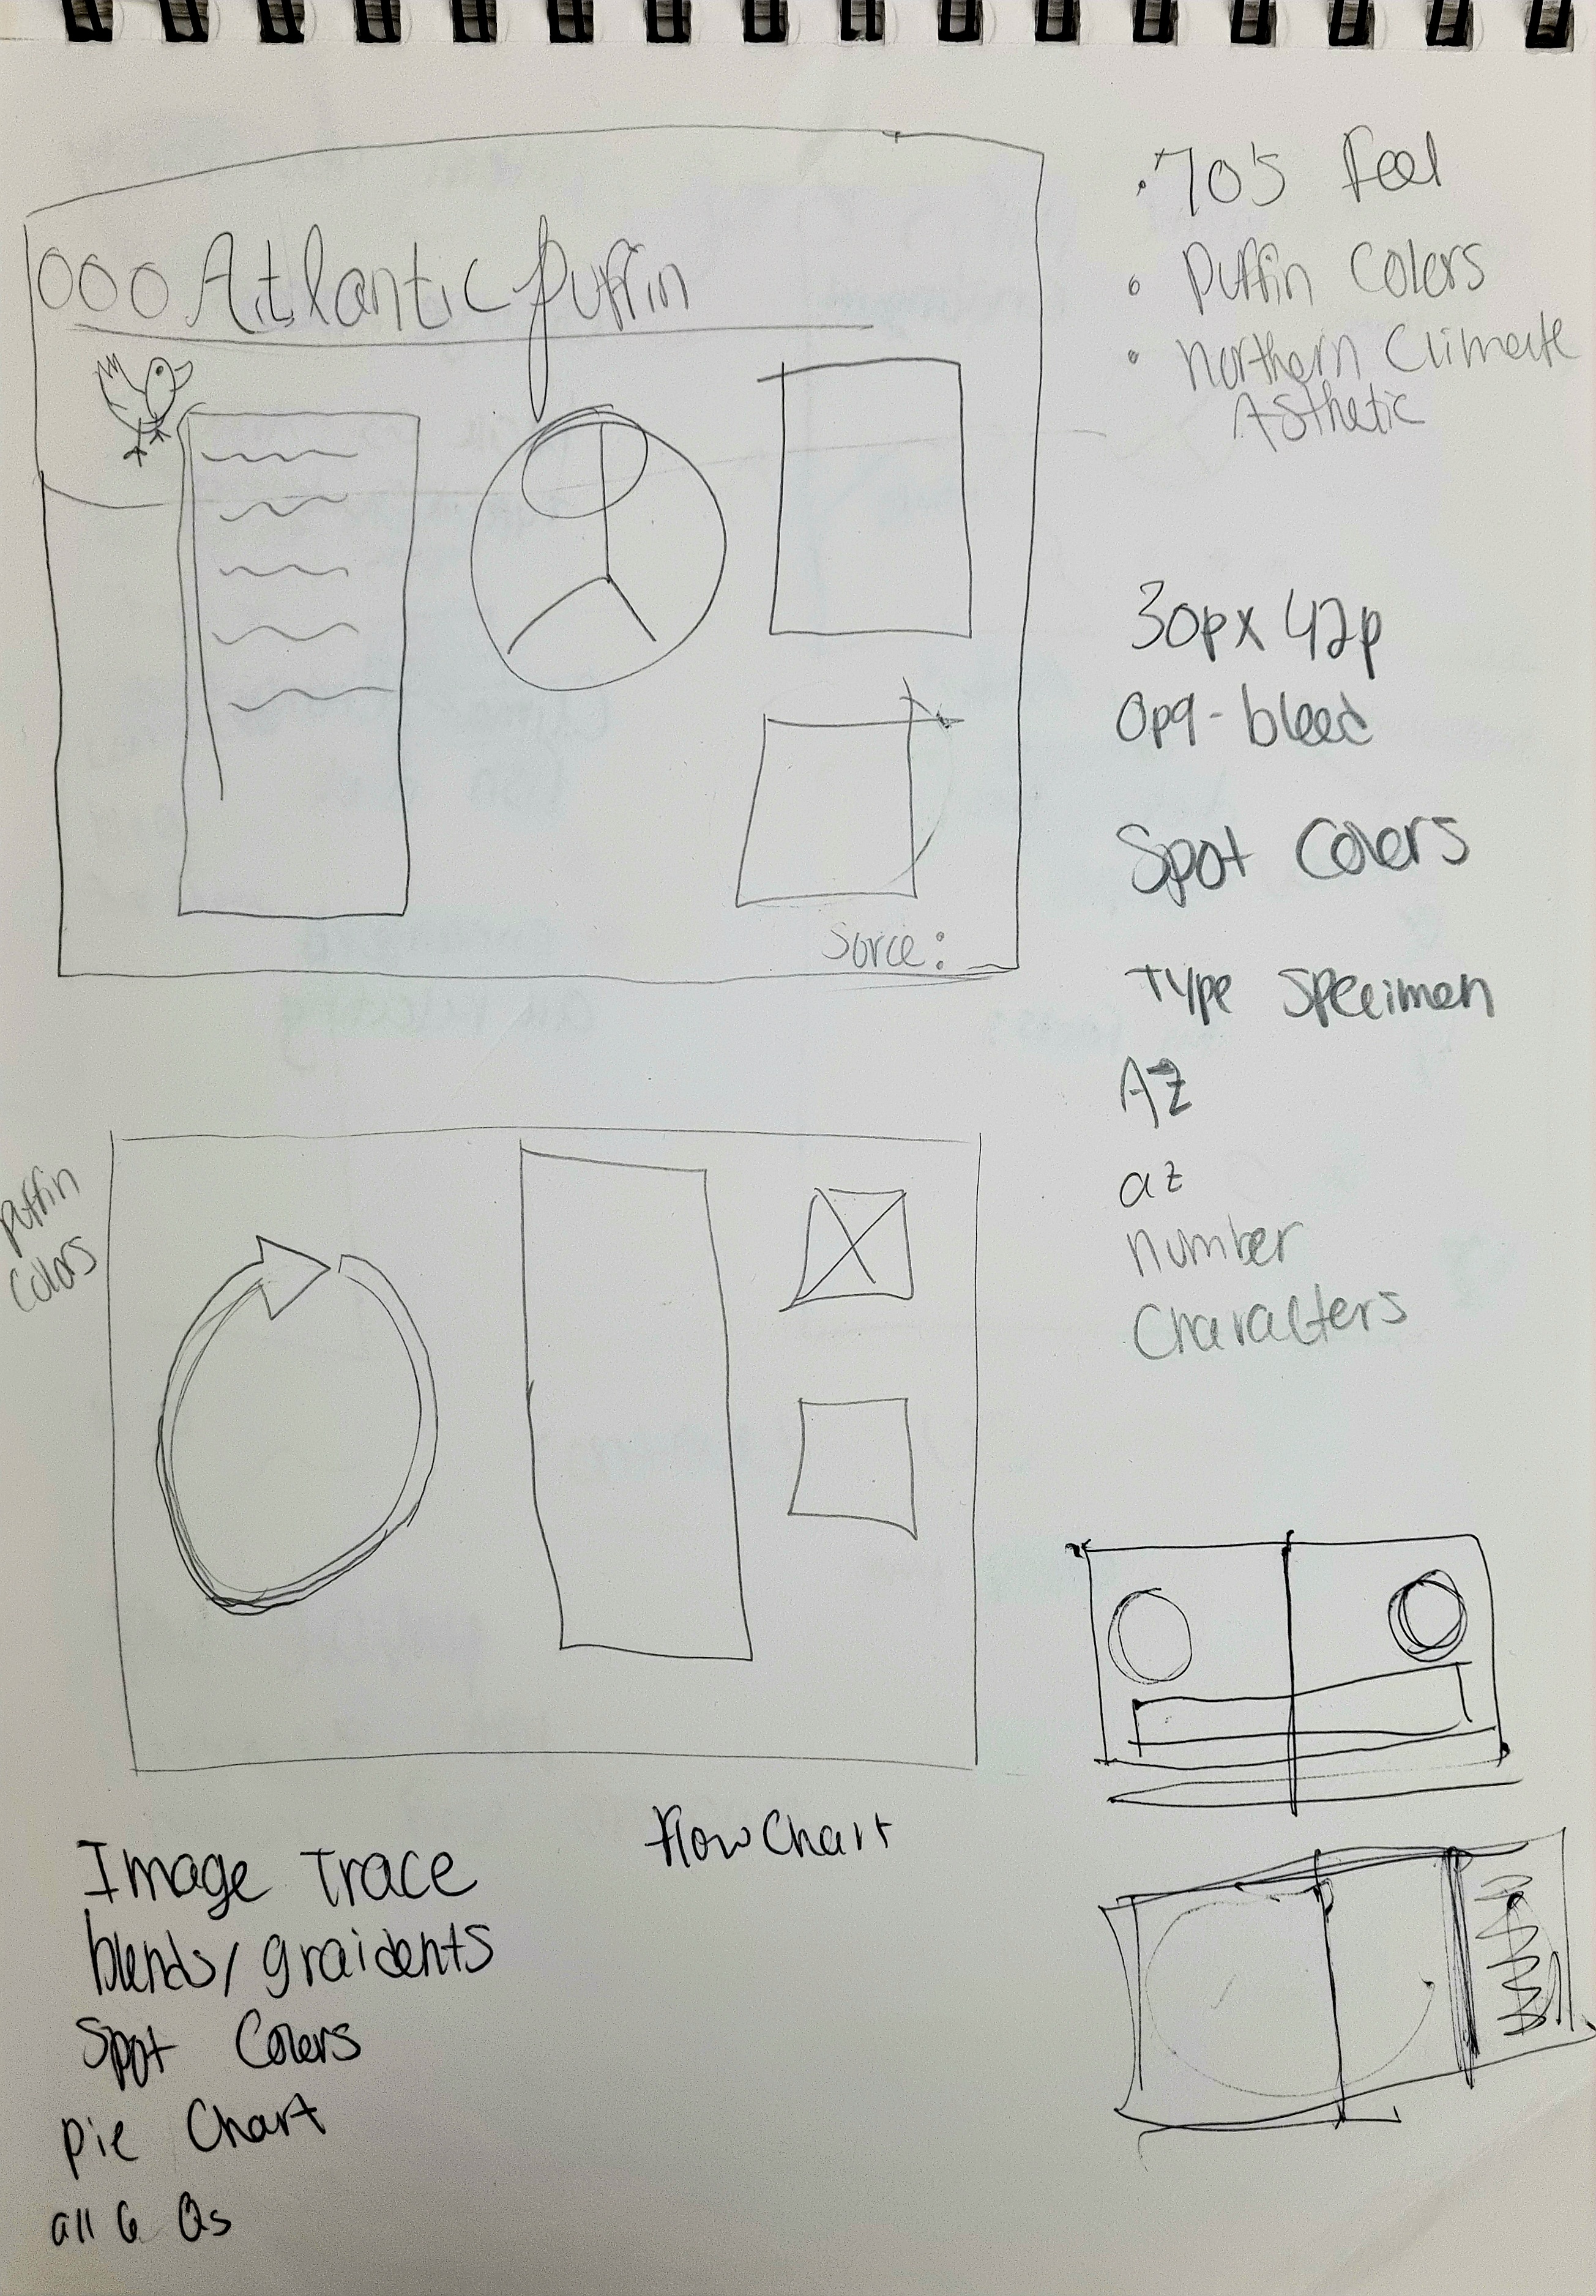 000 Atlantic Puffin
Sorce:
• 70's Feel
• Puffin Colors
• Northern Climate
Asthetic
30p x 42p
0p9 - bleed
Spot Colors
Type Specimen
AZ
az
number
Characters
Puffin
Colors
Flow Chart
Image Trace
blends/graidents
Spot Colors
Pie Chart
all 6 Qs